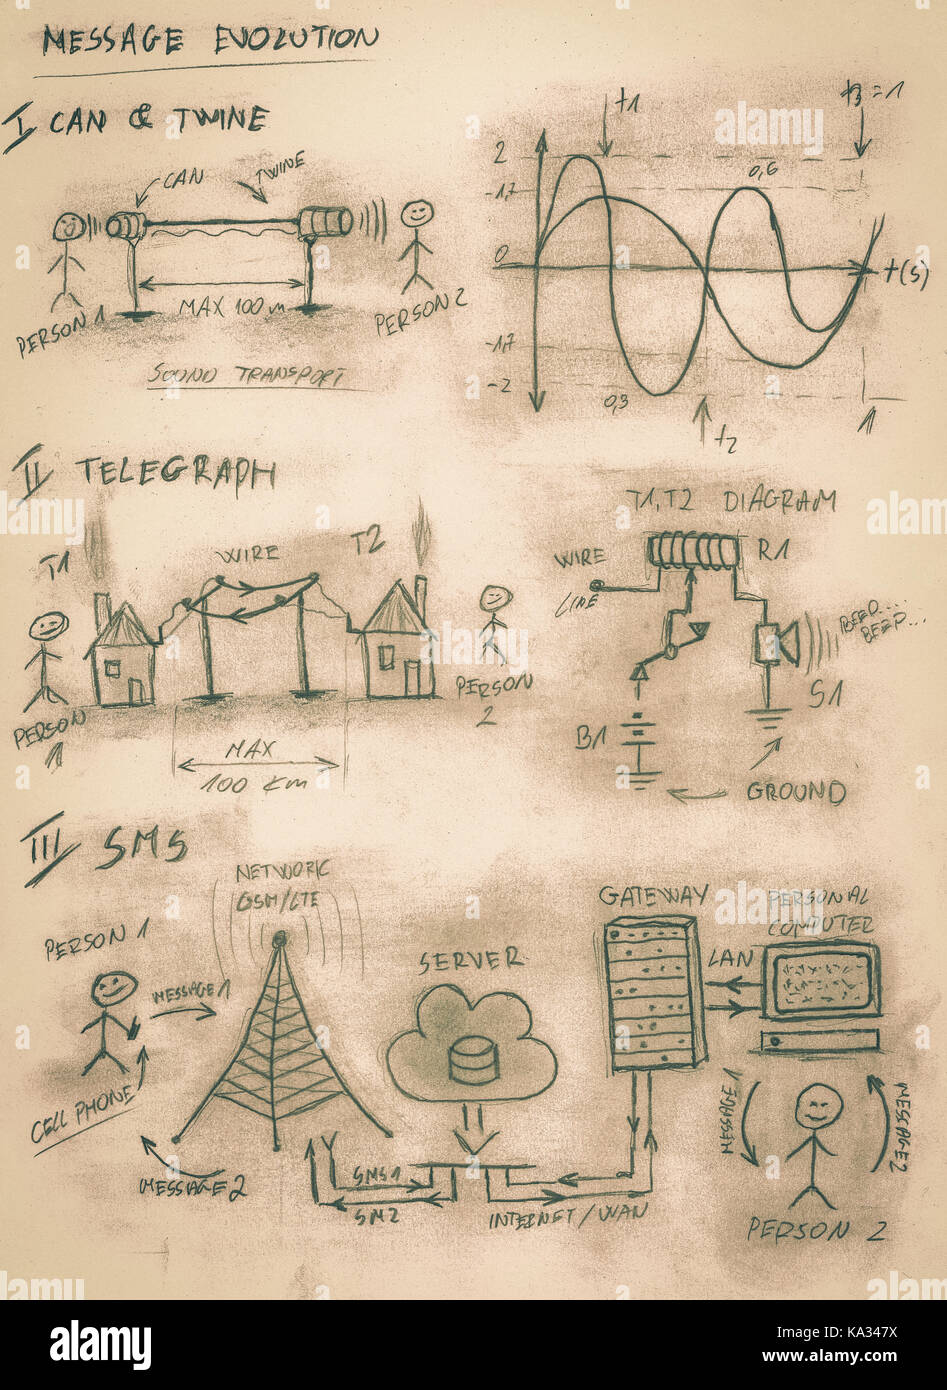 MESSAGE EVOLUTION
I CAN & TWINE
CAN
TWINE
PERSON 1
MAX 100 m
PERSON 2
SOUND TRANSPORT
t1
t3=1
2
-1,7
0,6
0
t(s)
-1,7
-2
0,3
t2
1
II TELEGRAPH
T1
WIRE
T2
PERSON
1
PERSON
2
MAX
100 km
T1,T2 DIAGRAM
WIRE
LINE
R1
BEEP...
BEEP...
S1
B1
GROUND
III SMS
NETWORK
GSM/LTE
PERSON 1
MESSAGE 1
CELL PHONE
MESSAGE 2
SERVER
GATEWAY
PERSONAL
COMPUTER
LAN
SMS1
SM2
INTERNET/WAN
MESSAGE 1
MESSAGE 2
PERSON 2
alamy
Image ID: KA347X
www.alamy.com